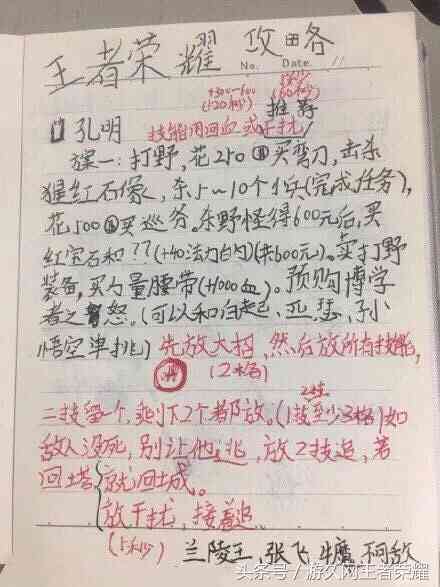 王者荣耀 攻略
No. Date.
+300~600
(120秒)
(60秒)
推荐
孔明 技能用回血或干扰
一:打野,花250买弯刀,击杀
猩红石像,杀5~10个(完成任务),
花500买巡务。杀野怪得600元后,买
红宝石和??(+40法力)(共600元)。买打野
装备,买力量腰带(+1000血)。预购博学
者之怒。(可以和白起、亚瑟、孙
悟空单挑)先放大招,然后放所有技能,
(2格)
二技留一个,剩下2个都放。(1技至少3格)如
敌人没死,别让他逃,放2技追,若
回塔 就回城。
放干扰,接着追。
(5秒)
兰陵王,张飞,牛魔,不可敌
头条号/游久网王者荣耀